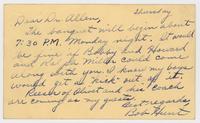 Thursday
Dear Dr. Allen,
The banquet will begin about
7:30 P.M. Monday night. It would
be fine if Bobby and Howard
and Miller could come
along with you. I know my boys
would get a "kick" out of it.
Reese of Olivet and his coach
are coming as my guests.
Best regards,
Bob Hunt